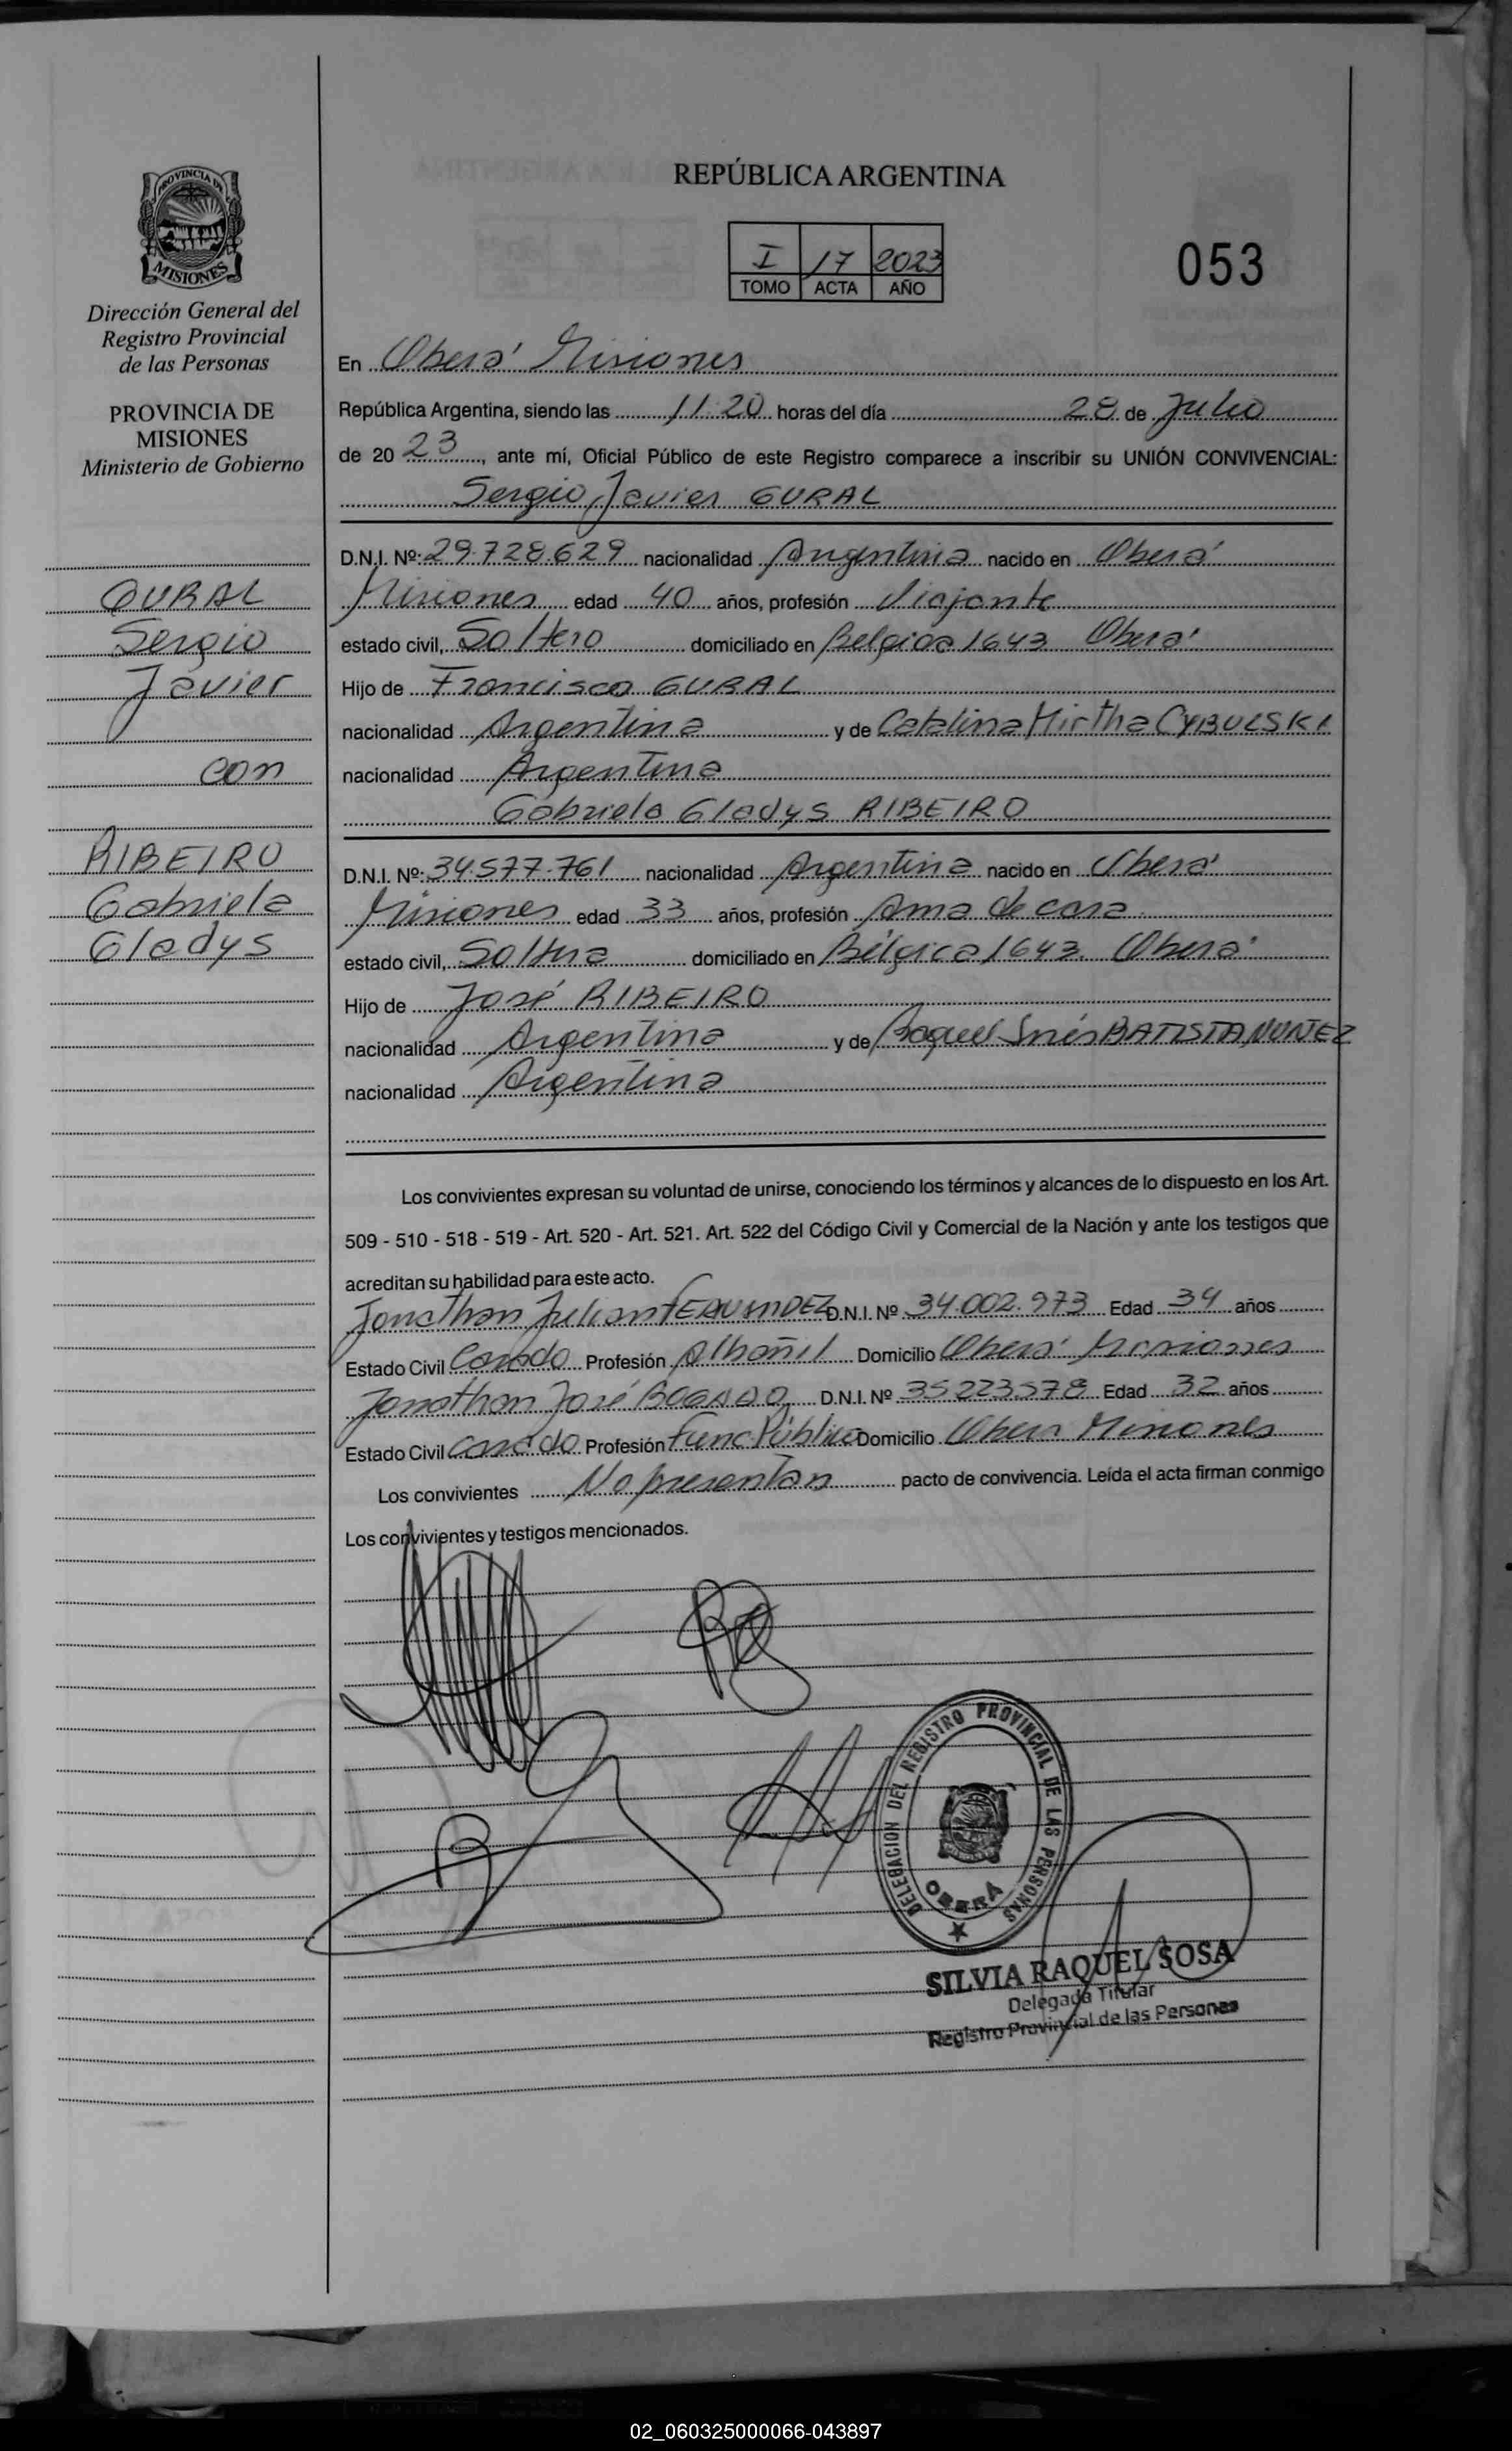 REPÚBLICA ARGENTINA
PROVINCIA DE
MISIONES
I 17 2023
TOMO ACTA AÑO
053
Dirección General del
Registro Provincial
de las Personas
PROVINCIA DE
MISIONES
Ministerio de Gobierno
GURAL
Sergio
Javier
con
RIBEIRO
Gabriela
Gladys
En Oberá Misiones
República Argentina, siendo las 11:20 horas del día 28 de Julio
de 20 23, ante mí, Oficial Público de este Registro comparece a inscribir su UNIÓN CONVIVENCIAL:
Sergio Javier GURAL
D.N.I. Nº: 29.728.629 nacionalidad Argentina nacido en Oberá
Misiones edad 40 años, profesión Viajante
estado civil, Soltero domiciliado en Belgica 1643 Oberá
Hijo de Francisco GURAL
nacionalidad Argentina y de Catalina Mirtha CYBULSKI
nacionalidad Argentina
Gabriela Gladys RIBEIRO
D.N.I. Nº: 34.577.761 nacionalidad Argentina nacido en Oberá
Misiones edad 33 años, profesión Ama de casa
estado civil, Soltera domiciliado en Bélgica 1643. Oberá
Hijo de José RIBEIRO
nacionalidad Argentina y de Raquel Inés BATISTA NUÑEZ
nacionalidad Argentina
Los convivientes expresan su voluntad de unirse, conociendo los términos y alcances de lo dispuesto en los Art.
509 - 510 - 518 - 519 - Art. 520 - Art. 521. Art. 522 del Código Civil y Comercial de la Nación y ante los testigos que
acreditan su habilidad para este acto.
Jonathan Julian FERNANDEZ D.N.I. Nº 34.002.973 Edad 34 años
Estado Civil Casado Profesión Albañil Domicilio Oberá Misiones
Jonathan José BOGADO D.N.I. Nº 35223578 Edad 32 años
Estado Civil Casado Profesión Func. Público Domicilio Oberá Misiones
Los convivientes No presentan pacto de convivencia. Leída el acta firman conmigo
Los convivientes y testigos mencionados.
DELEGACION DEL REGISTRO PROVINCIAL DE LAS PERSONAS
OBERÁ
SILVIA RAQUEL SOSA
Delegada Titular
Registro Provincial de las Personas
02_060325000066-043897